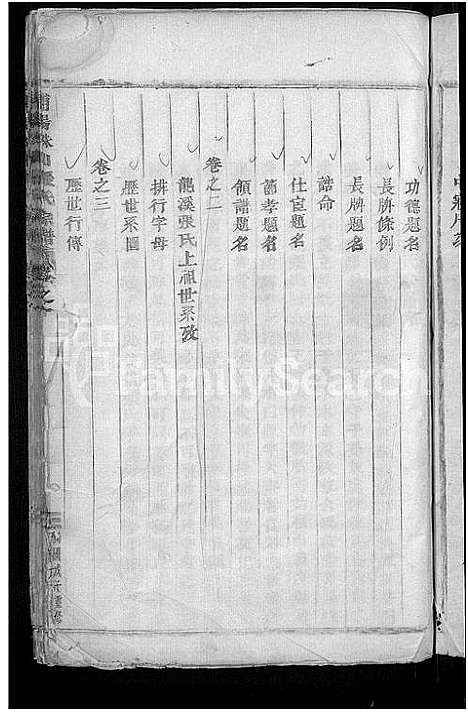 功德題名
長牌條例
長牌題名
誥命
仕宦題名
節孝題名
領譜題名
卷之二
龍溪張氏上祖世系攷
排行字母
歷世系圖
卷之三
歷世行傳
FamilySearch